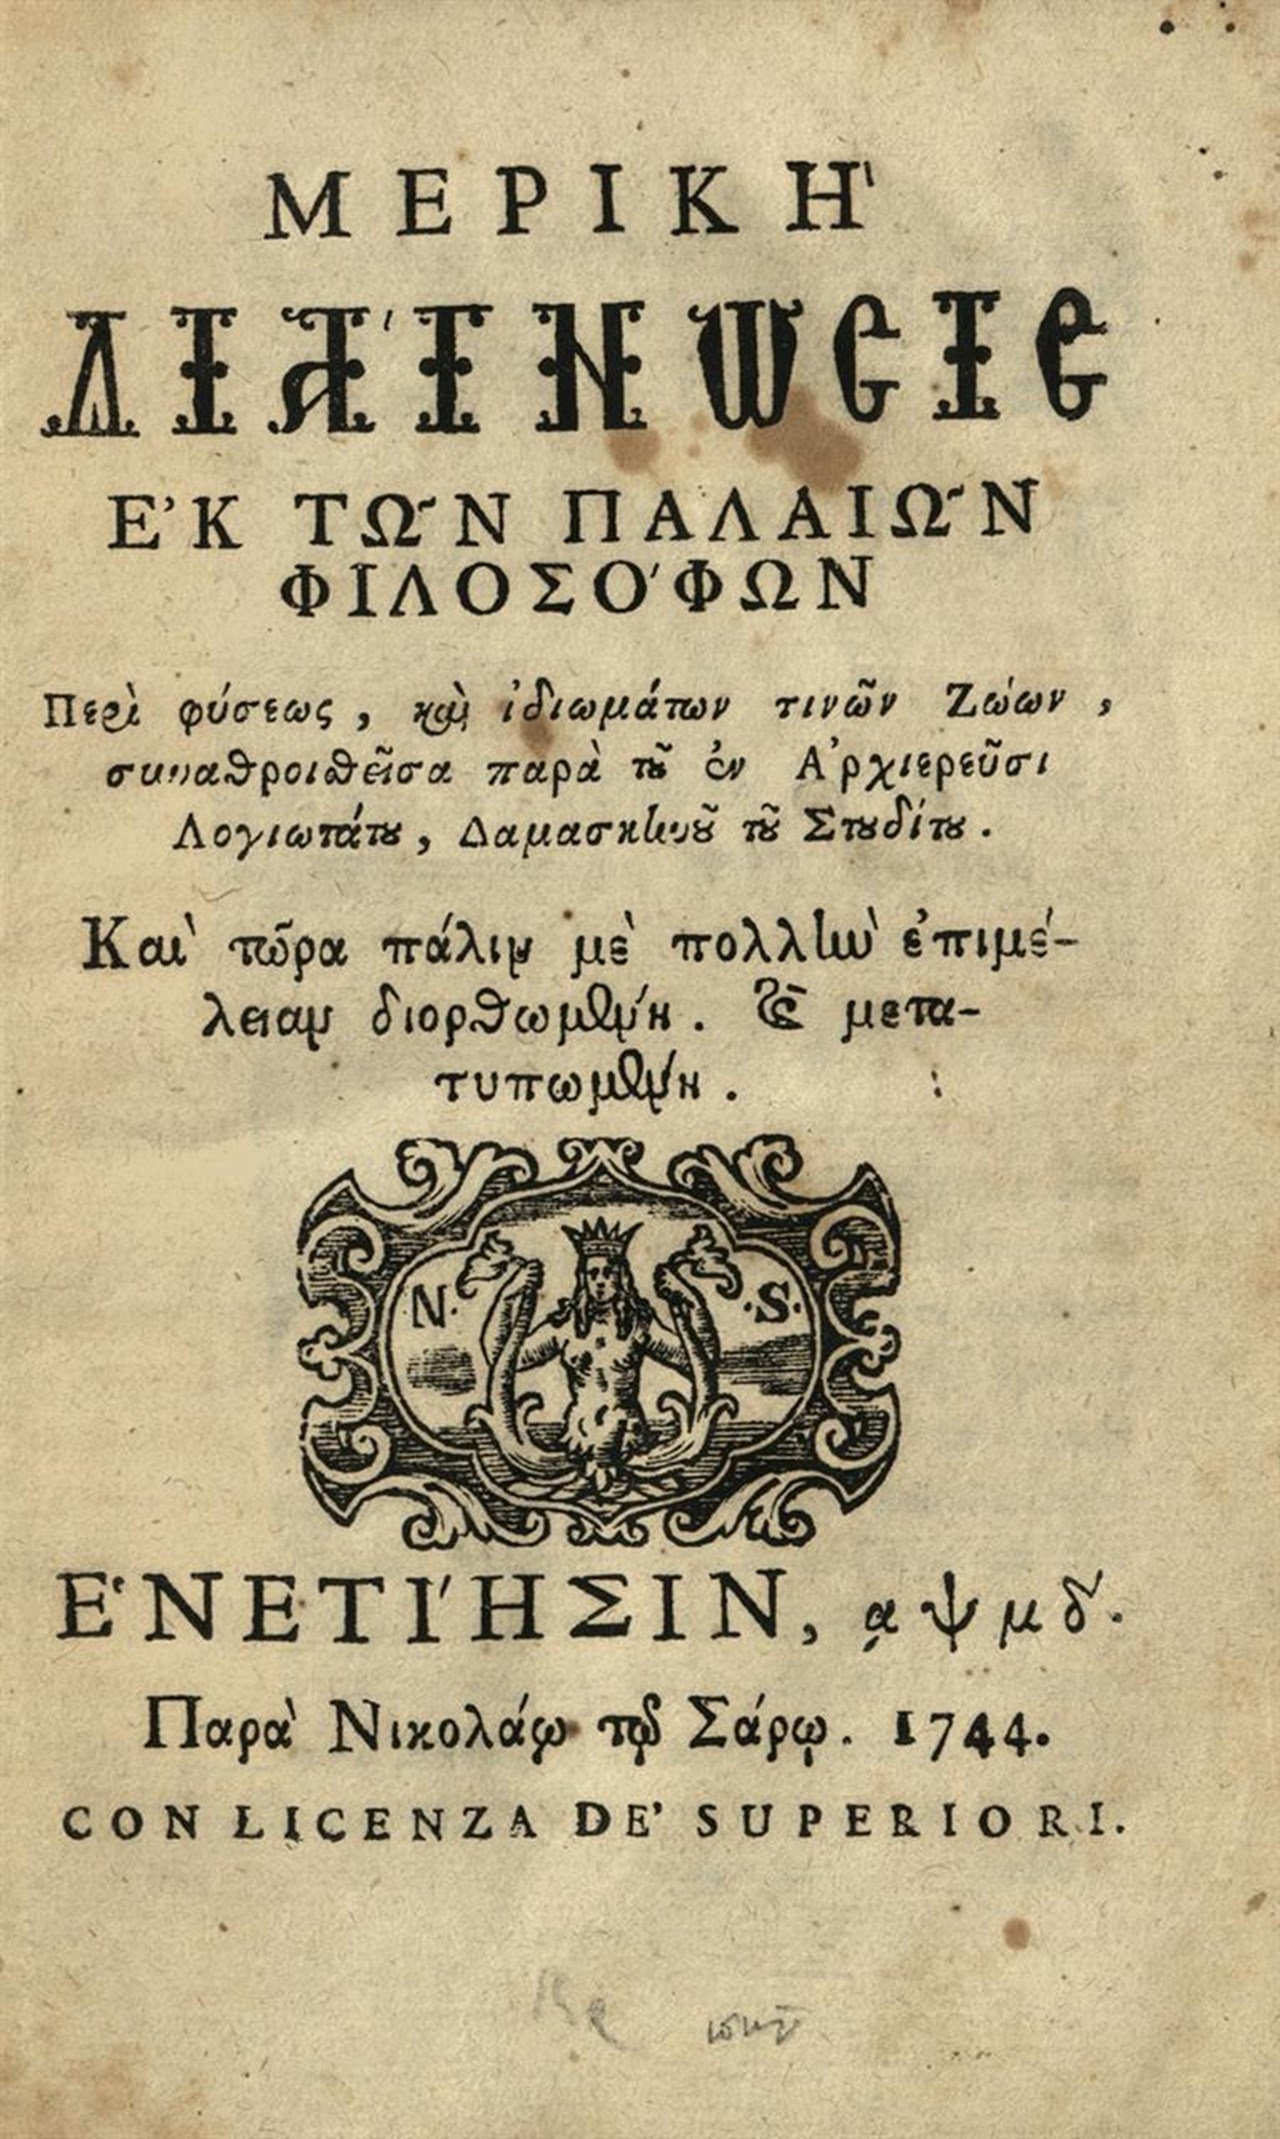 ΜΕΡΙΚῊ
ΔΙΆΓΝΩCΙC
ἘΚ ΤΩ͂Ν ΠΑΛΑΙΩ͂Ν
ΦΙΛΟΣΌΦΩΝ
Περὶ φύσεως, καὶ ἰδιωμάτων τινῶν Ζώων,
συναθροισθεῖσα παρὰ τοῦ ἐν Ἀρχιερεῦσι
Λογιωτάτου, Δαμασκηνοῦ τοῦ Στουδίτου.
Καὶ τῶρα πάλιν μὲ πολλὴν ἐπιμέ-
λειαν διορθωμένη. Καὶ μετα-
τυπωμένη.
·N· ·S·
ἙΝΕΤΊΗΣΙΝ, ͵αψμδʹ.
Παρὰ Νικολάῳ τῷ Σάρῳ. 1744.
CON LICENZA DE' SUPERIORI.